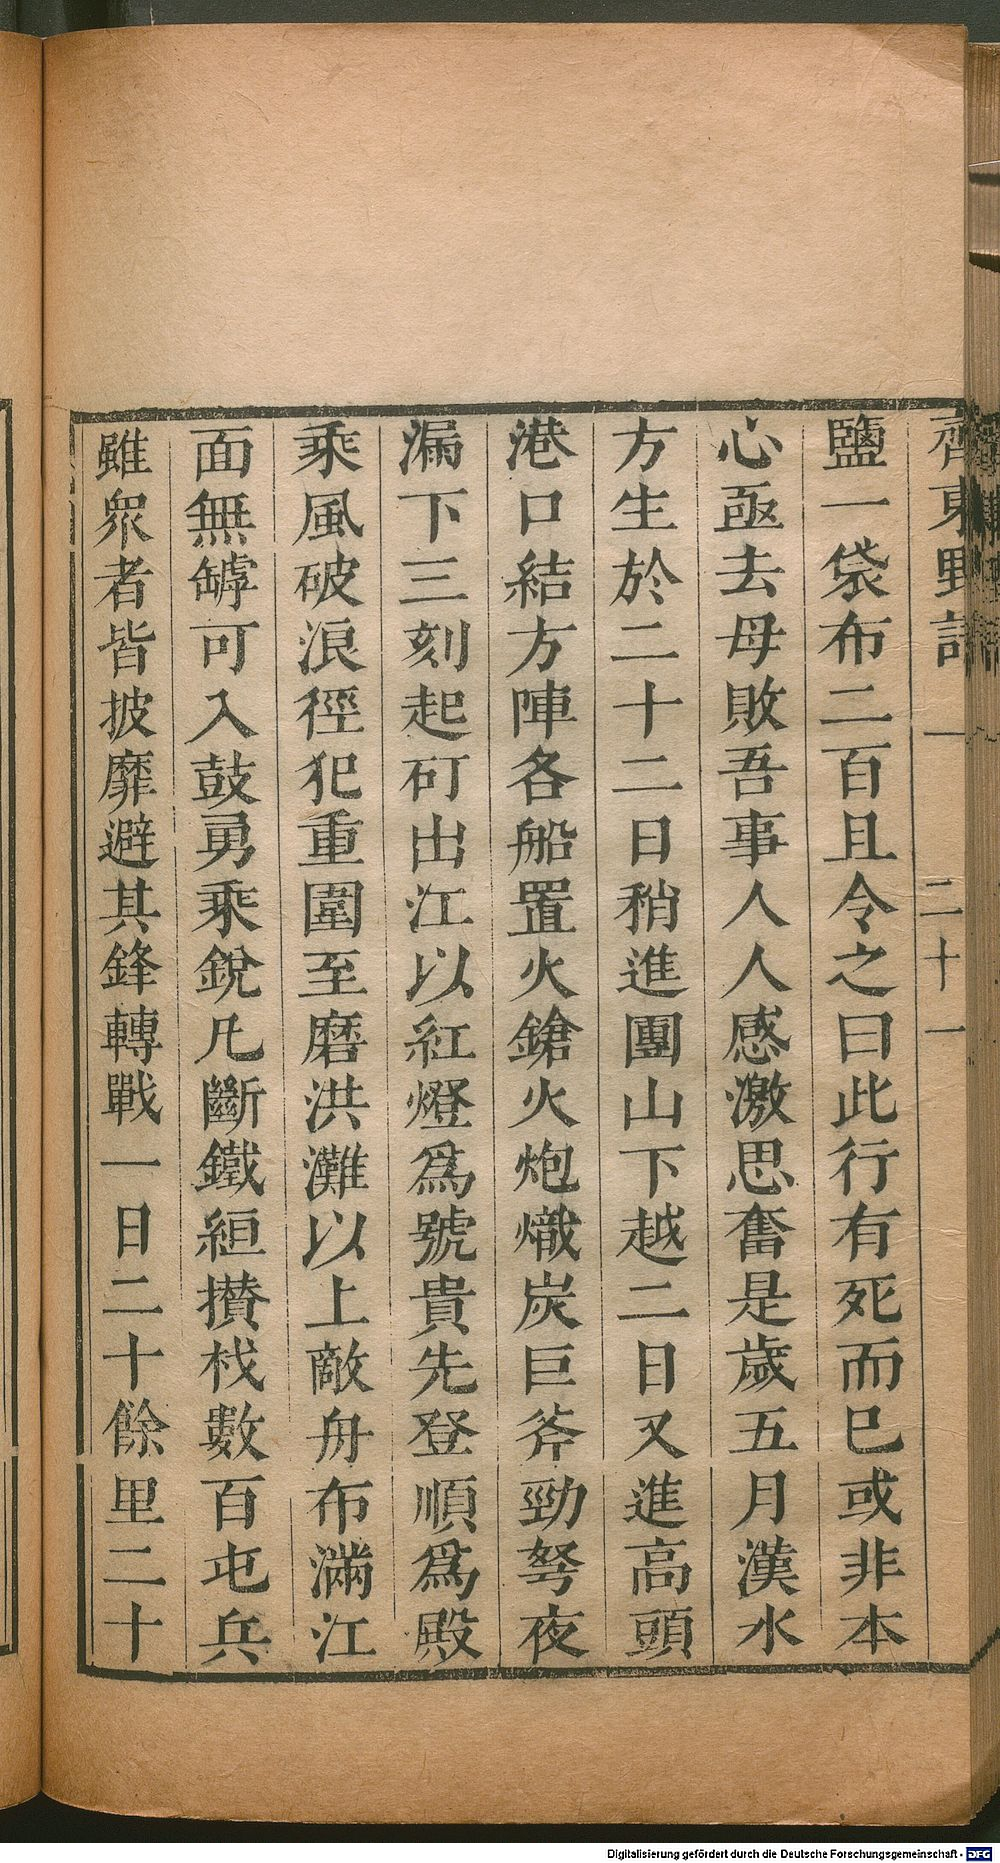 齊東野語 一 二十一
鹽一袋布二百且令之曰此行有死而巳或非本
心亟去母敗吾事人人感激思奮是歲五月漢水
方生於二十二日稍進團山下越二日又進高頭
港口結方陣各船置火鎗火炮熾炭巨斧勁弩夜
漏下三刻起矴出江以紅燈爲號貴先登順爲殿
乘風破浪徑犯重圍至磨洪灘以上敵舟布滿江
面無罅可入鼓勇乘銳凡斷鐵絙攢杙數百屯兵
雖衆者皆披靡避其鋒轉戰一日二十餘里二十
Digitalisierung gefördert durch die Deutsche Forschungsgemeinschaft - DFG